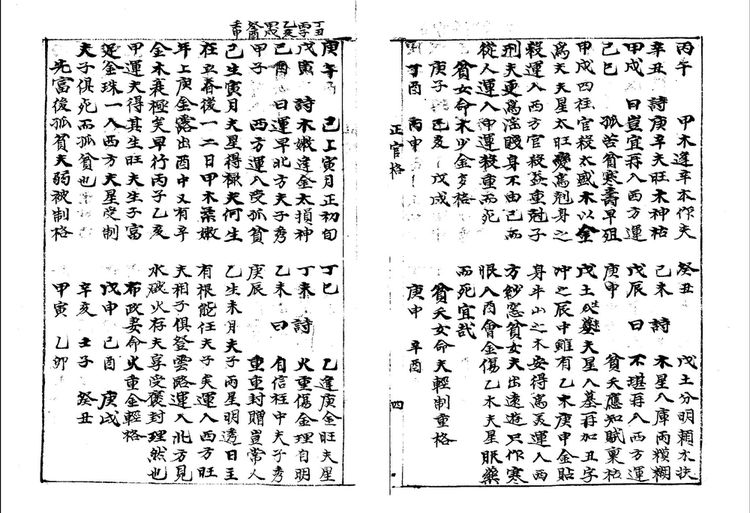 丙午　甲木逢辛本作夫
辛丑　詩　庚辛夫旺木神枯
甲戌　曰　豈宜再入西方運
己巳　孤苦貧寒壽早殂
甲戌四柱官殺太或木以金
為夫夫星太旺變為剋身之
殺運入西方官殺葢重尅子
刑夫更為淫賤身不由己而
從人運入申運殺重而死
貧女命木少金多格
庚子　己亥　戊戌
丁酉　丙申
癸丑　戊土分明賴木扶
己未　詩　木星入庫兩糢糊
戊辰　曰　不堪再入西方運
庚申　貧夭應知賦稟枯
戊土夫星入墓再加丑字
沖之辰中雖有乙木庚申金貼
身半山之木安得為美運入西
方紗窓貧女夫出遠遊只作寒
眼入酉會金傷乙木夫星服藥
而死宜哉
貧夭女命夫輕制重格
庚申　辛酉
正官格
四
丁丑　丙子　乙亥　甲戌　癸酉　壬申
庚辛　己土寅月正初旬
戊寅　詩　木嫩逢金太損神
己酉　曰　運早北方夫子秀
甲子　西方運入受孤貧
己生寅月夫星得祿夫何生
在立春後一二日甲木柔嫩
年上庚金露出酉中又有辛
金木衰極矣早行丙子乙亥
甲運夫得其生旺夫生子富
金珠一入西方夫星受制
夫子俱死而孤貧也
先富後孤貧夫弱被制格
丁巳　乙逢庚金旺夫星
丁未　詩　火重傷金理自明
乙未　曰　自信柱中夫子秀
庚辰　重重封贈豈常人
乙生未月夫子丙星明透日主
有根能任夫子矣運入西方旺
夫相子俱登雲路運入北方見
水破火存夫享受褒封理然也
布政妻命火重金輕格
戊申　己酉　庚戌
辛亥　壬子　癸丑
甲寅　乙卯